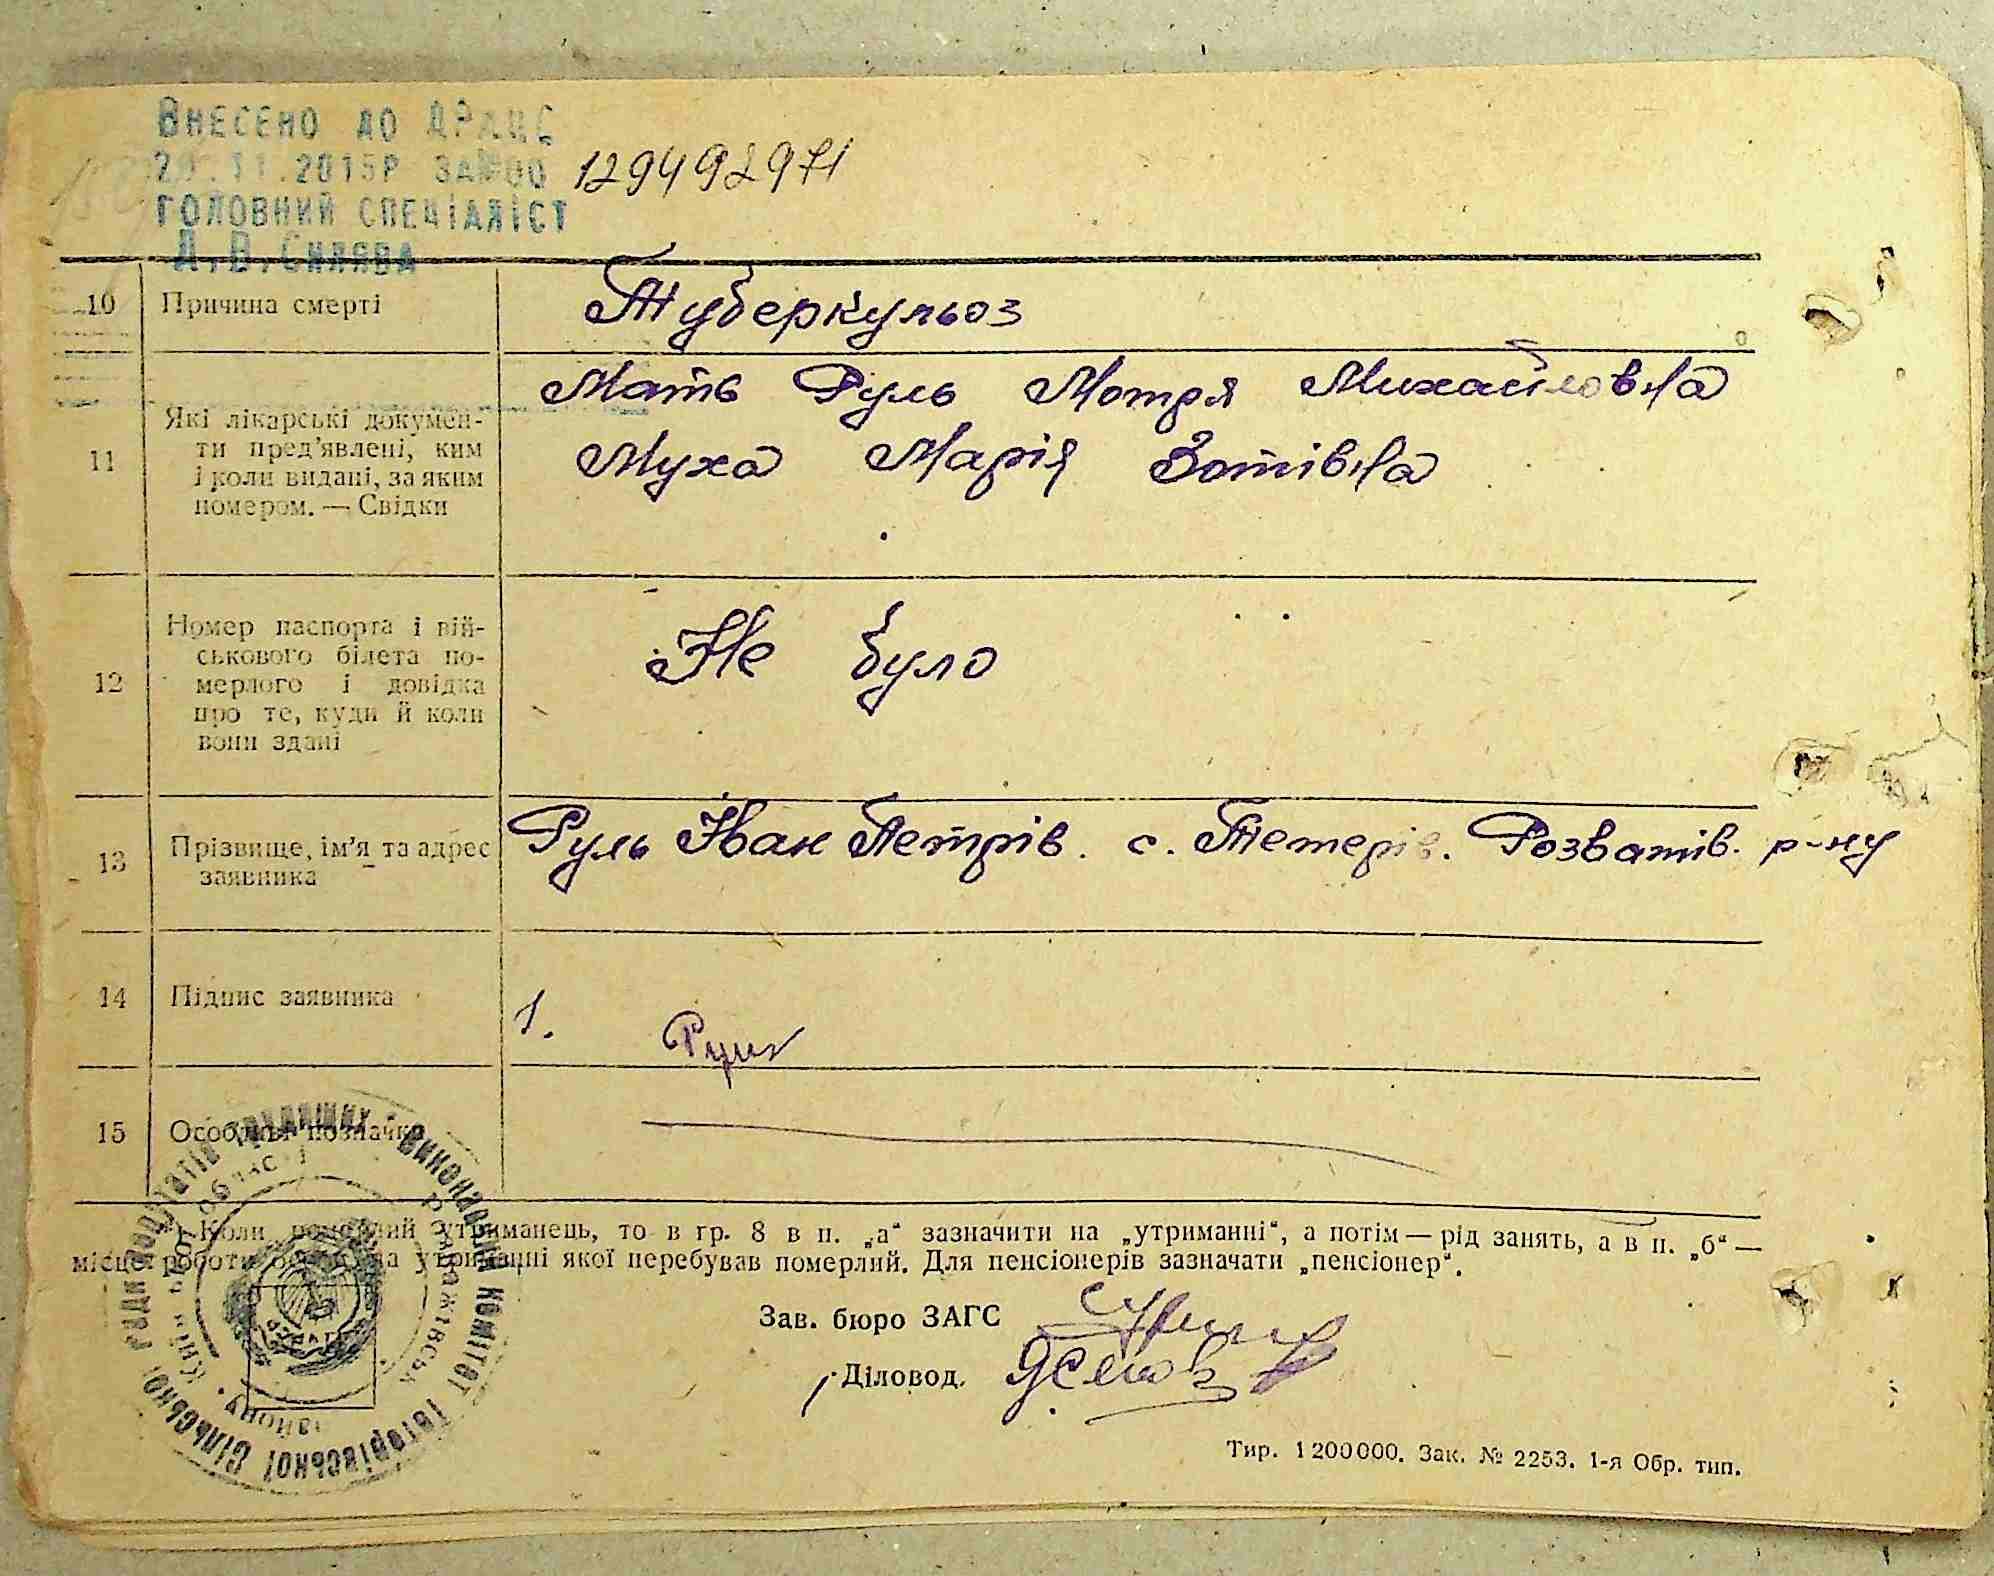 Внесено до ДРАЦС
.11.2015р за №00 129492971
головний спеціаліст
Д.В.Силява
10 Причина смерті Туберкульоз
11 Які лікарські докумен-
ти пред’явлені, ким
і коли видані, за яким
номером. — Свідки
Мать Руль Мотря Михайловна
Муха Марія Зотівна
12 Номер паспорта і вій-
ськового білета по-
мерлого і довідка
про те, куди й коли
вони здані
Не було
13 Прізвище, ім’я та адрес
заявника
Руль Іван Петрів. с. Тетерів. Розватів. р-ну
14 Підпис заявника 1. Руль
15 Особливі позначки
Коли померлий утриманець, то в гр. 8 в п. „а“ зазначити на „утриманні“, а потім — рід занять, а в п. „б“ —
місце роботи особи, на утриманні якої перебував померлий. Для пенсіонерів зазначати „пенсіонер“.
Зав. бюро ЗАГС
Діловод.
Тир. 1200000. Зак. № 2253. 1-я Обр. тип.
виконавчий комітет сільської ради депутатів трудящих
області